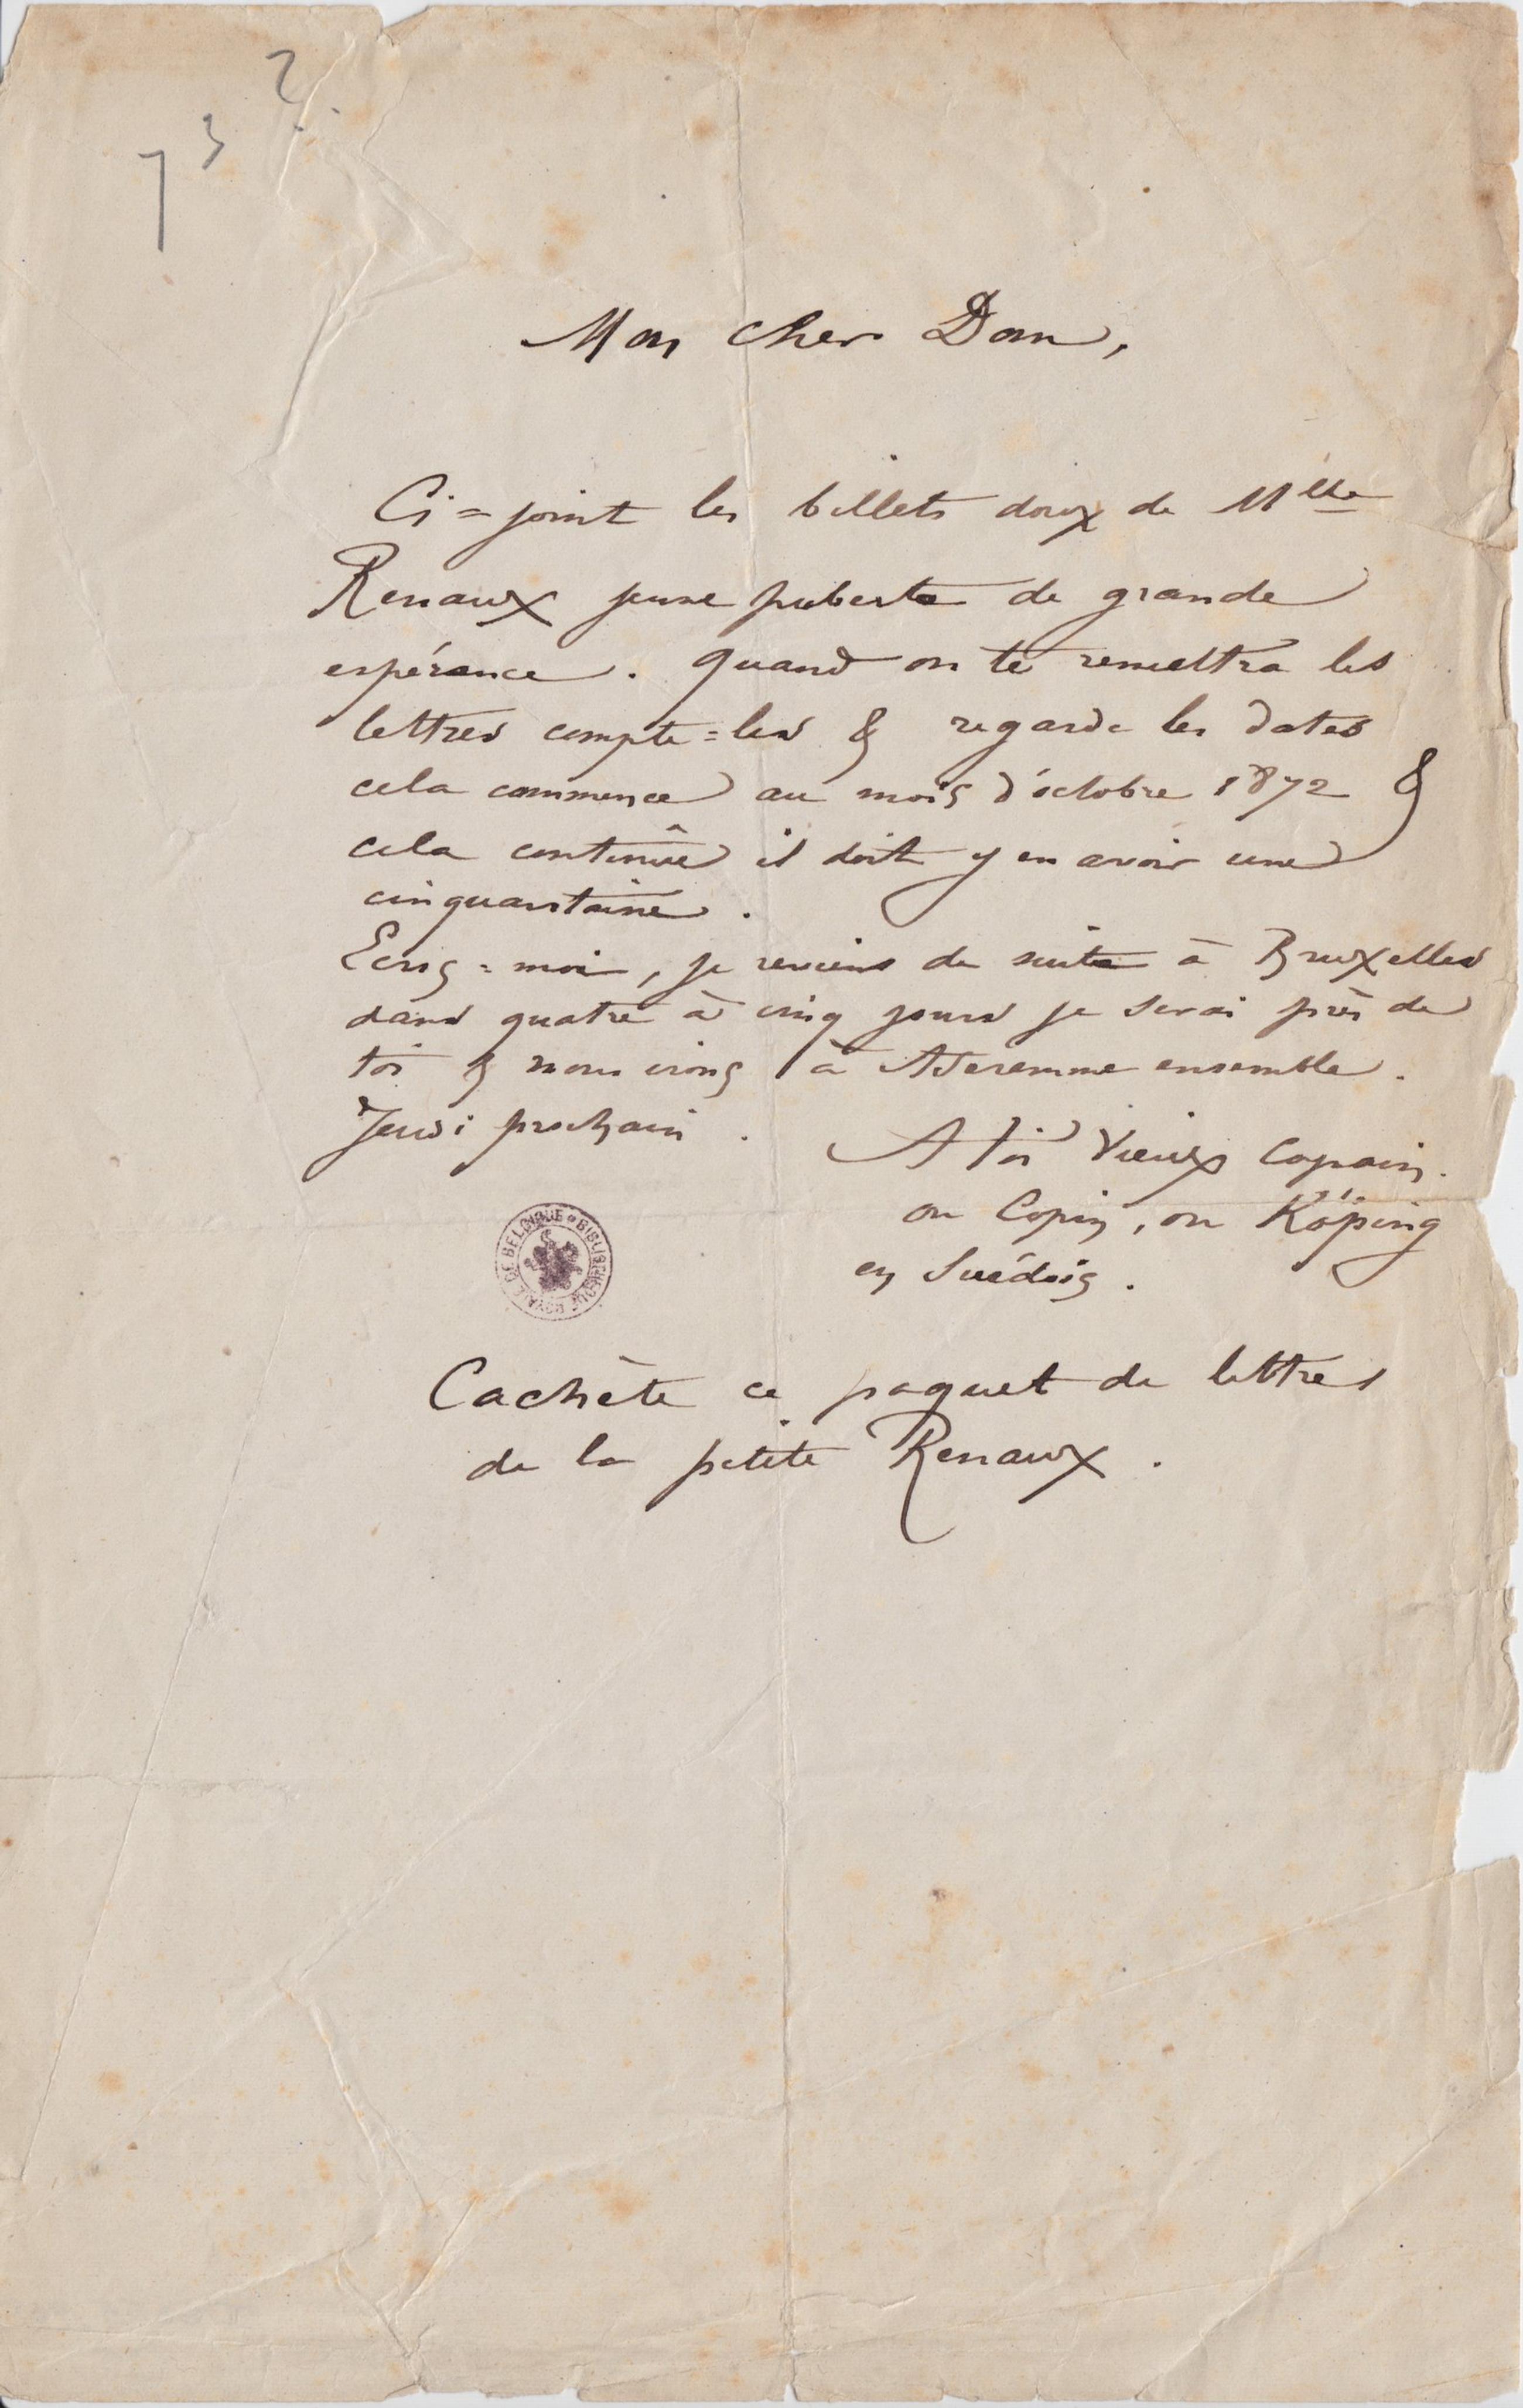 73 ?
Mon cher Dom,
Ci=joint les billets doux de Mlle
Renaux jeune puberte de grande
espérance. Quand on te remettra les
lettres compte=les & regarde les dates
cela commence au mois d'octobre 1872 &
cela continûe il doit y en avoir une
cinquantaine.
Ecris=moi, je reviens de suite à Bruxelles
dans quatre à cinq jours je serai près de
toi & nous irons à Anseremme ensemble.
Jeudi prochain.
A toi Vieux Copain.
ou Copin, ou Köping
en Suédois.
BIBLIOTHÈQUE ROYALE DE BELGIQUE
Cachète ce paquet de lettres
de la petite Renaux.